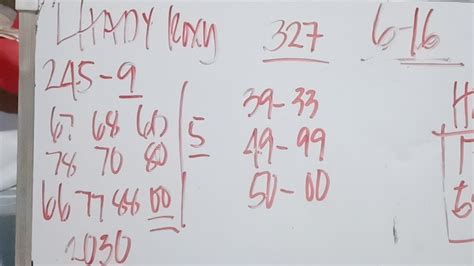 LHADY Roxy 327 6-16
245-9
67 68 60 5 39-33
78 70 80 49-99
66 77 88 00 50-00
2030